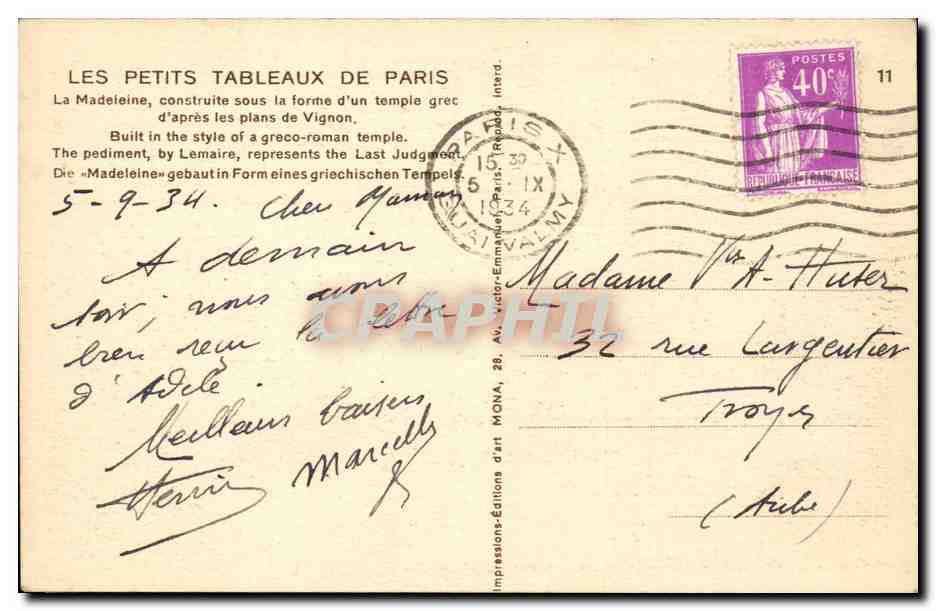 LES PETITS TABLEAUX DE PARIS
La Madeleine, construite sous la forme d'un temple grec
d'après les plans de Vignon.
Built in the style of a greco-roman temple.
The pediment, by Lemaire, represents the Last Judgment.
Die «Madeleine» gebaut in Form eines griechischen Tempels.
5-9-34. Cher Maman
A demain
soir, nous avons
bien reçu la lettre
d'Adèle.
Meilleurs baisers
Marcelle
Impressions-Editions d'art MONA, 28, Av. Victor-Emmanuel, Paris. (Reprod. interd.
PARIS X
15 30
5 - IX
1934
QUAI VALMY
POSTES
40c
REPUBLIQUE FRANCAISE
11
Madame Vve A. Huter
32 rue Largentier
Troyes
(Aube)
CPAPHIL